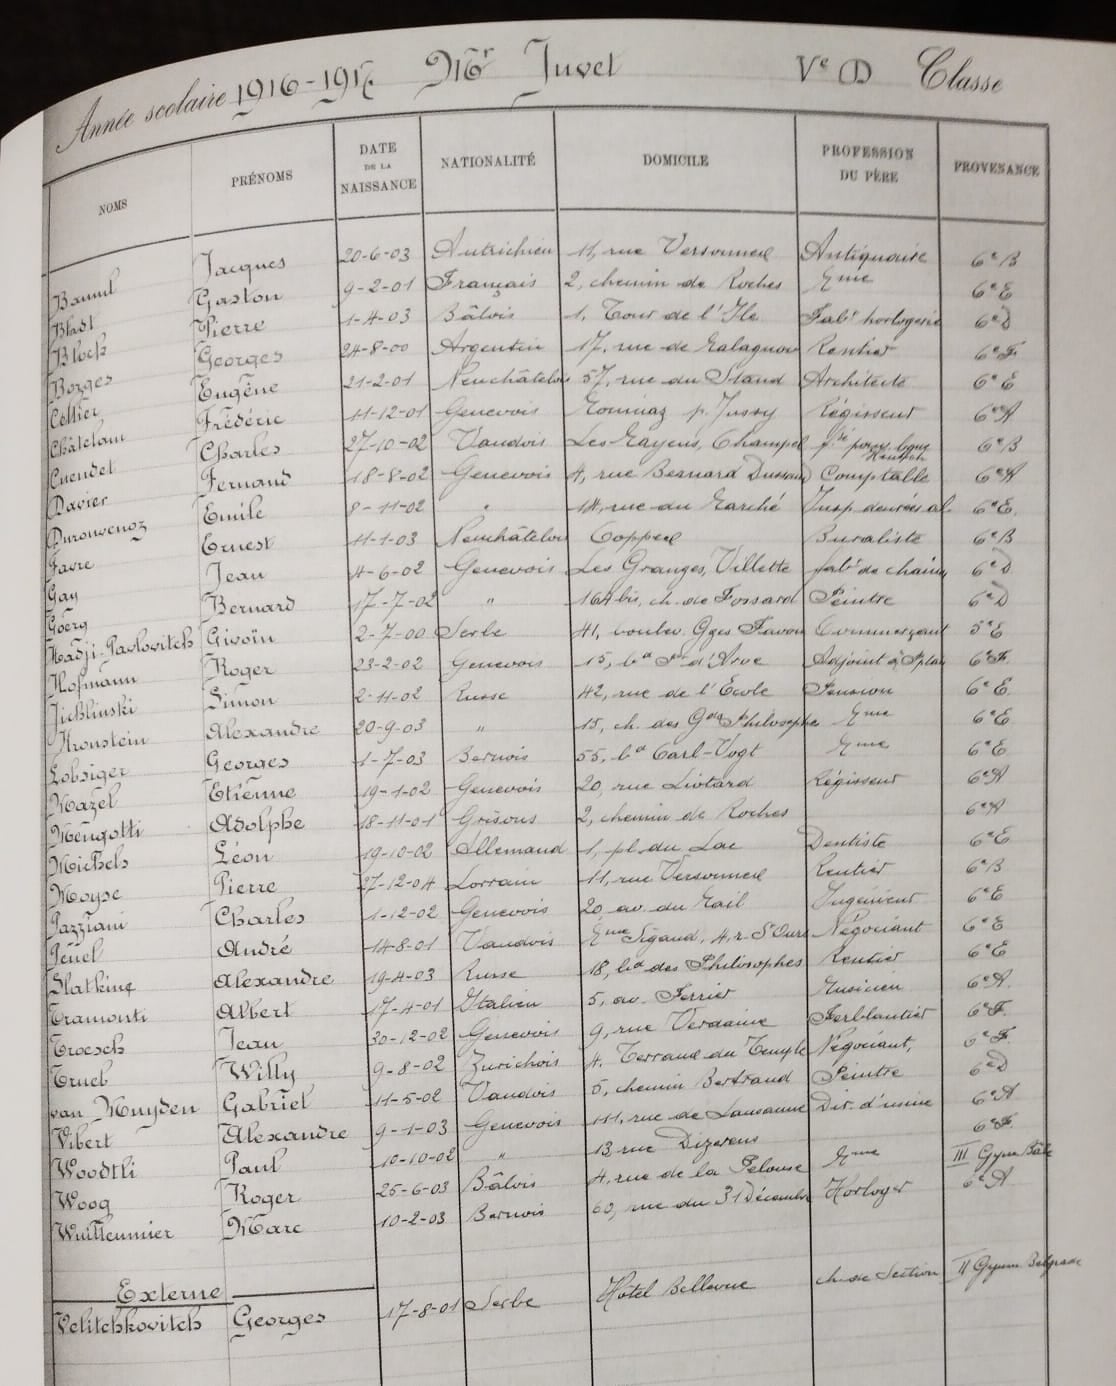 Année scolaire 1916-1917 Mr Juvet Ve (I) Classe
NOMS PRÉNOMS DATE DE LA NAISSANCE NATIONALITÉ DOMICILE PROFESSION DU PÈRE PROVENANCE
Jacques 20-6-03 Autrichien 11, rue Versonnex Antiquaire 6e B
Blast Gaston 9-2-01 Français 2, chemin de Roches Mme 6e E
Bloch Pierre 1-4-03 Bâlois 1, Tour de l'Ile Fabt horlogerie 6e D
Borges Georges 24-8-00 Argentin 17, rue de Malagnou Rentier 6e F
Cellier Eugène 21-2-01 Neuchâtelois 57, rue du Stand Architecte 6e E
Châtelain Frédéric 11-12-01 Genevois Monniaz p. Jussy Régisseur 6e A
Cuendet Charles 27-10-02 Vaudois Les Mayens, Champel 6e B
Davier Fernand 18-8-02 Genevois 4, rue Bernard Dussaud Comptable 6e A
Emile 8-11-02 " 14, rue du Marché Insp. denrées al. 6e E.
Favre Ernest 11-1-03 Neuchâtelois Coppet Buraliste 6e B
Gay Jean 4-6-02 Genevois Les Granges, Villette fabt de chaînes 6e D
Goerg Bernard 17-7-02 " 164 bis, ch. de Fossard Peintre 6e D
Hadji-Pavlovitch Givoïn 2-7-00 Serbe 41, boulev. Gges Favon Commerçant 5e E
Hofmann Roger 23-2-02 Genevois 15, bd Pt d'Arve Adjoint 6e F.
Jichlinski Simon 2-11-02 Russe 42, rue de l'Ecole Pension 6e E.
Kronstein Alexandre 20-9-03 " 15, ch. des Gds Philosophes Mme 6e E
Lobsiger Georges 1-7-03 Bernois 55, bd Carl-Vogt Mme 6e E
Mazel Etienne 19-1-02 Genevois 20, rue Liotard Régisseur 6e A
Mengotti Adolphe 18-11-01 Grisons 2, chemin de Roches 6e A
Michels Léon 19-10-02 Allemand 1, pl. du Lac Dentiste 6e E
Moyse Pierre 27-12-04 Lorrain 11, rue Versonnex Rentier 6e B
Pazziani Charles 1-12-02 Genevois 20 av. du Mail Ingénieur 6e E
Pénel André 14-8-01 Vaudois Mme Sigaud, 4, r. St Ours Négociant 6e E
Slatkine Alexandre 19-4-03 Russe 18, bd des Philosophes Rentier 6e E
Tramonti Albert 17-4-01 Italien 5, av. Ferrier Musicien 6e A.
Troesch Jean 30-12-02 Genevois 9, rue Verdaine Ferblantier 6e F.
Trueb Willy 9-8-02 Zurichois 4, Terraux du Temple Négociant, 6e F.
van Muyden Gabriel 11-5-02 Vaudois 5, chemin Bertrand Peintre 6e D
Vibert Alexandre 9-1-03 Genevois 111, rue de Lausanne Dir. d'usine 6e A
Woodtli Paul 10-10-02 " 13, rue Dizerens 6e F.
Woog Roger 25-6-03 Bâlois 4, rue de la Pelouse Mme III Gym Bâle
Wuilleumier Marc 10-2-03 Bernois 60, rue du 31 Décembre Horloger 6e A
Externe
Velitchkovitch Georges 17-8-01 Serbe Hôtel Bellevue ch. de Section II Gymn Belgrade